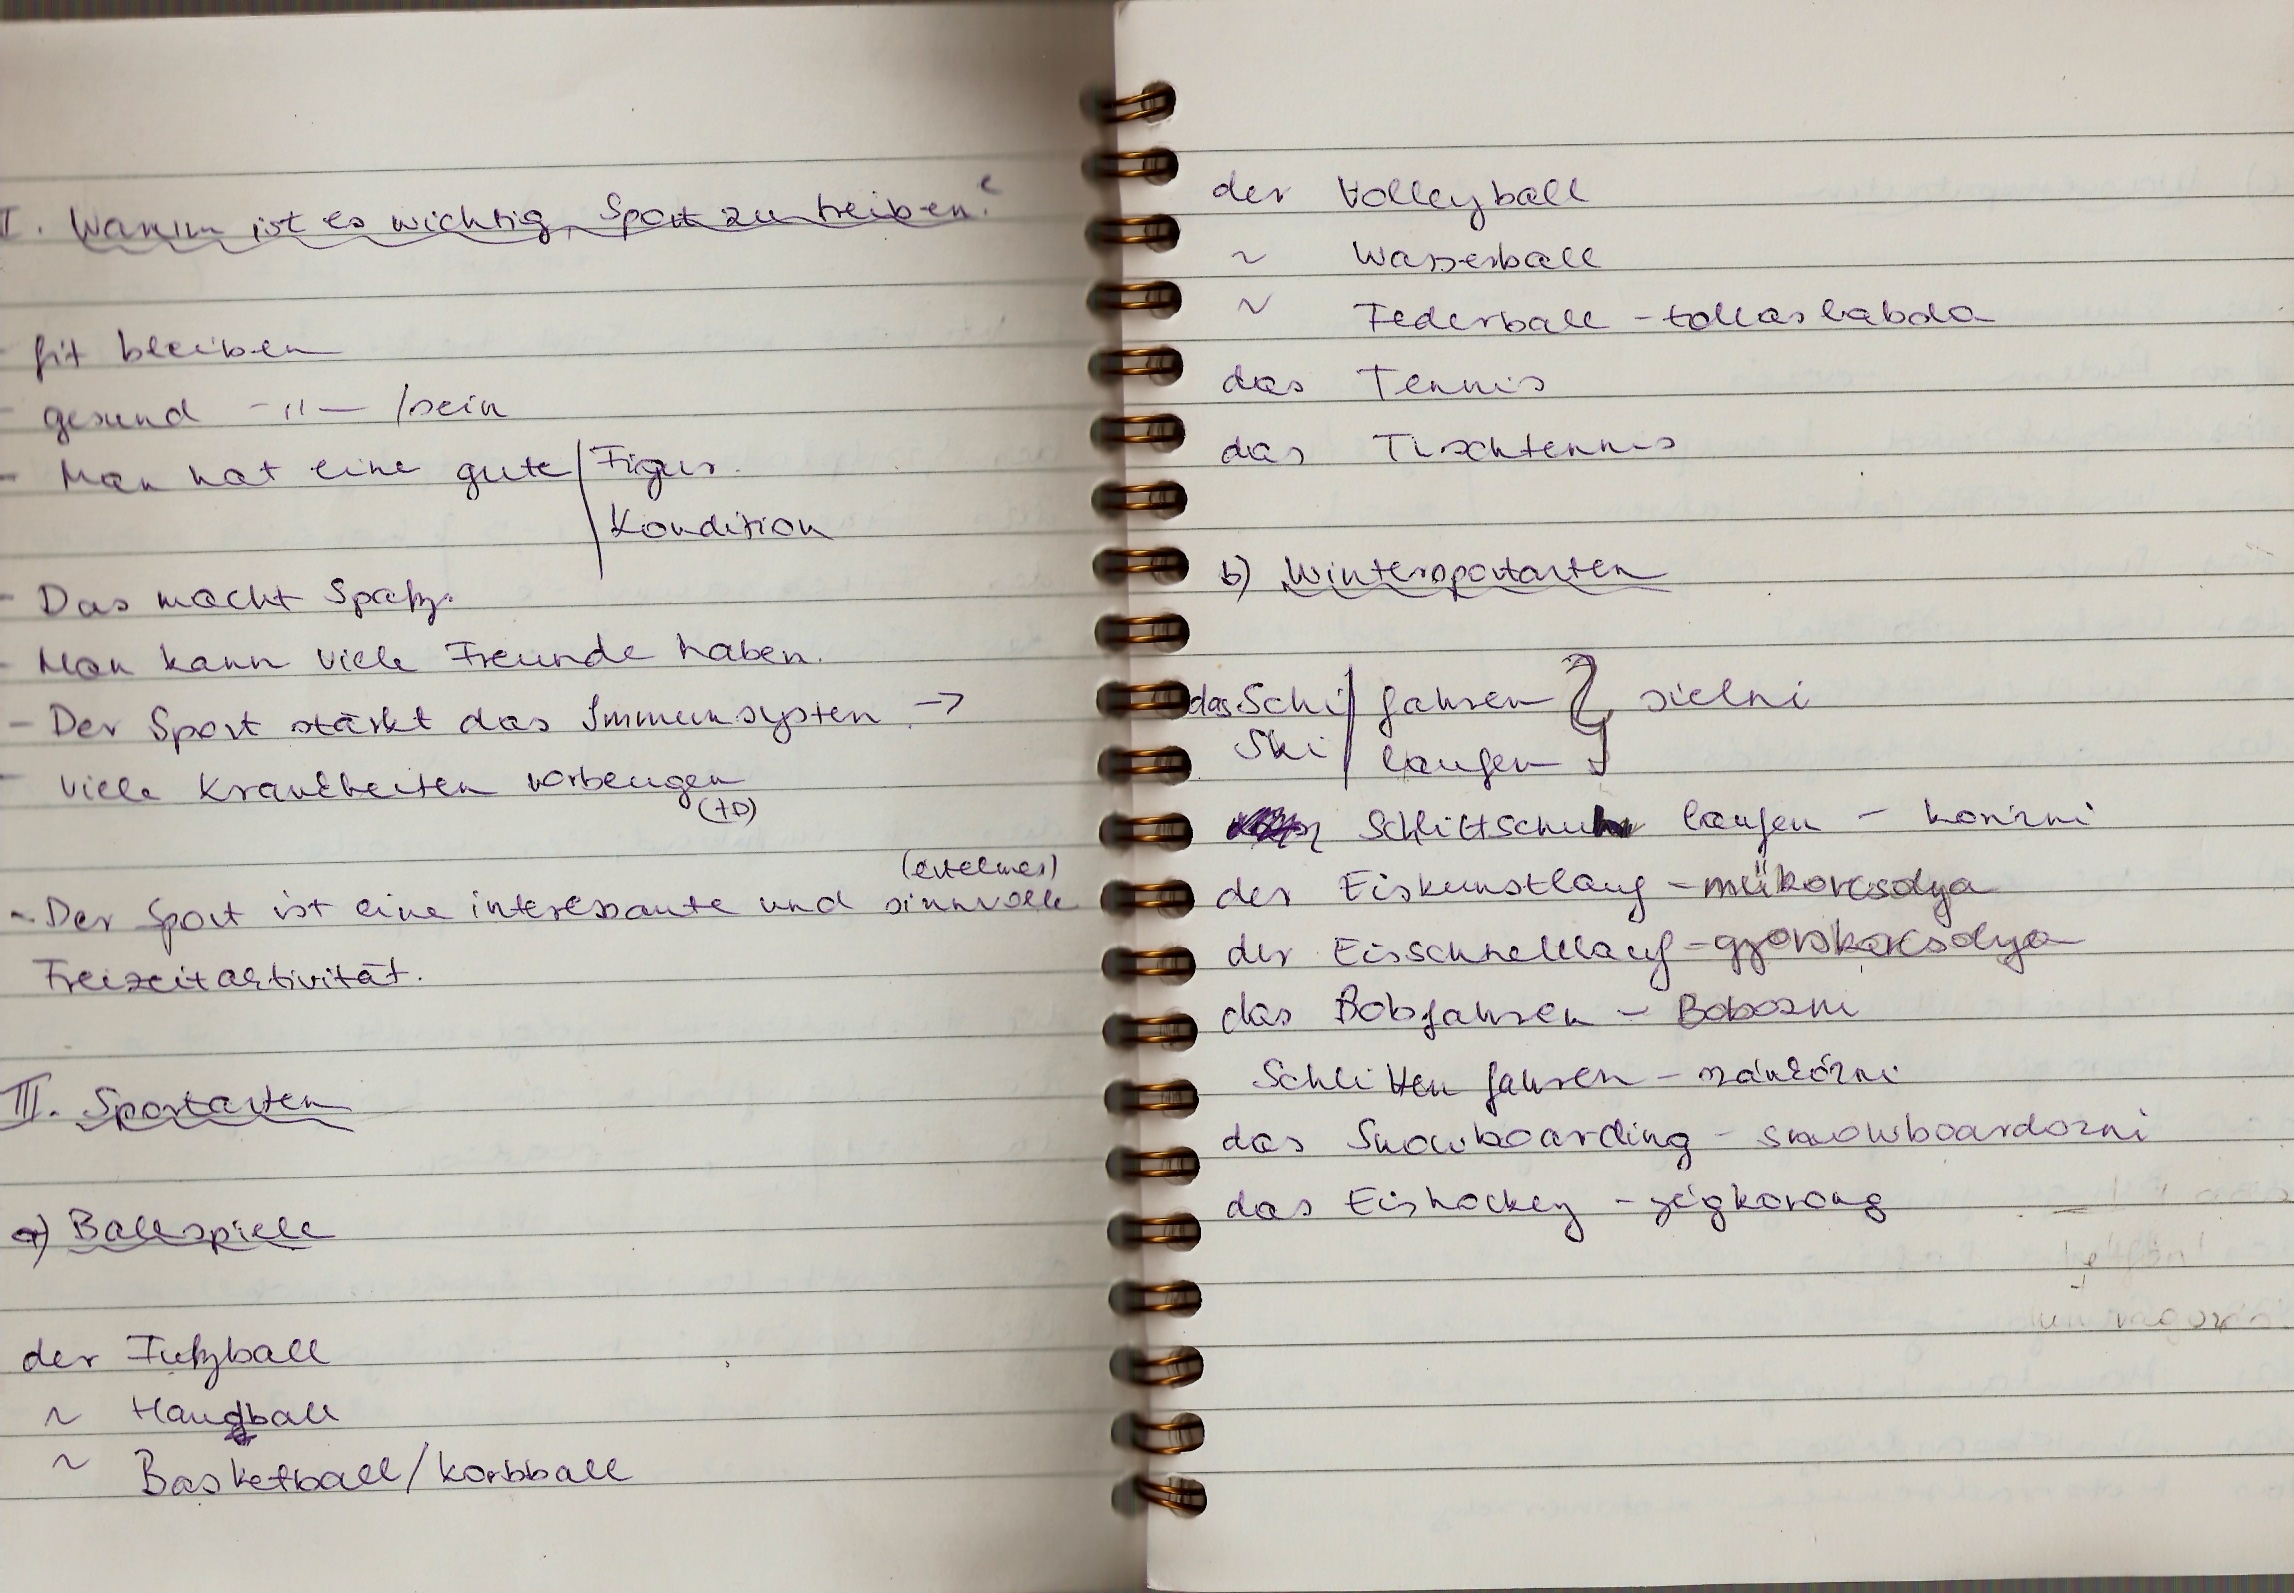 I. Warum ist es wichtig, Sport zu treiben?
- fit bleiben
- gesund -"- /sein
- Man hat eine gute / Figur.
Kondition
- Das macht Spaß.
- Man kann viele Freunde haben.
- Der Sport stärkt das Immunsystem. →
- viele Krankheiten vorbeugen
(+D)
(értelmes)
- Der Sport ist eine interessante und sinnvolle
Freizeitaktivität.
III. Sportarten
a) Ballspiele
der Fußball
~ Handball
~ Basketball/Korbball
der Volleyball
~ Wasserball
~ Federball - tollaslabda
das Tennis
das Tischtennis
b) Wintersportarten
das Schi / fahren } síelni
Ski / laufen
Schlittschuh laufen - korizni
der Eiskunstlauf - műkorcsolya
der Eisschnelllauf - gyorskorcsolya
das Bobfahren - Bobozni
Schlitten fahren - szánkózni
das Snowboarding - snowboardozni
das Eishockey - jégkorong